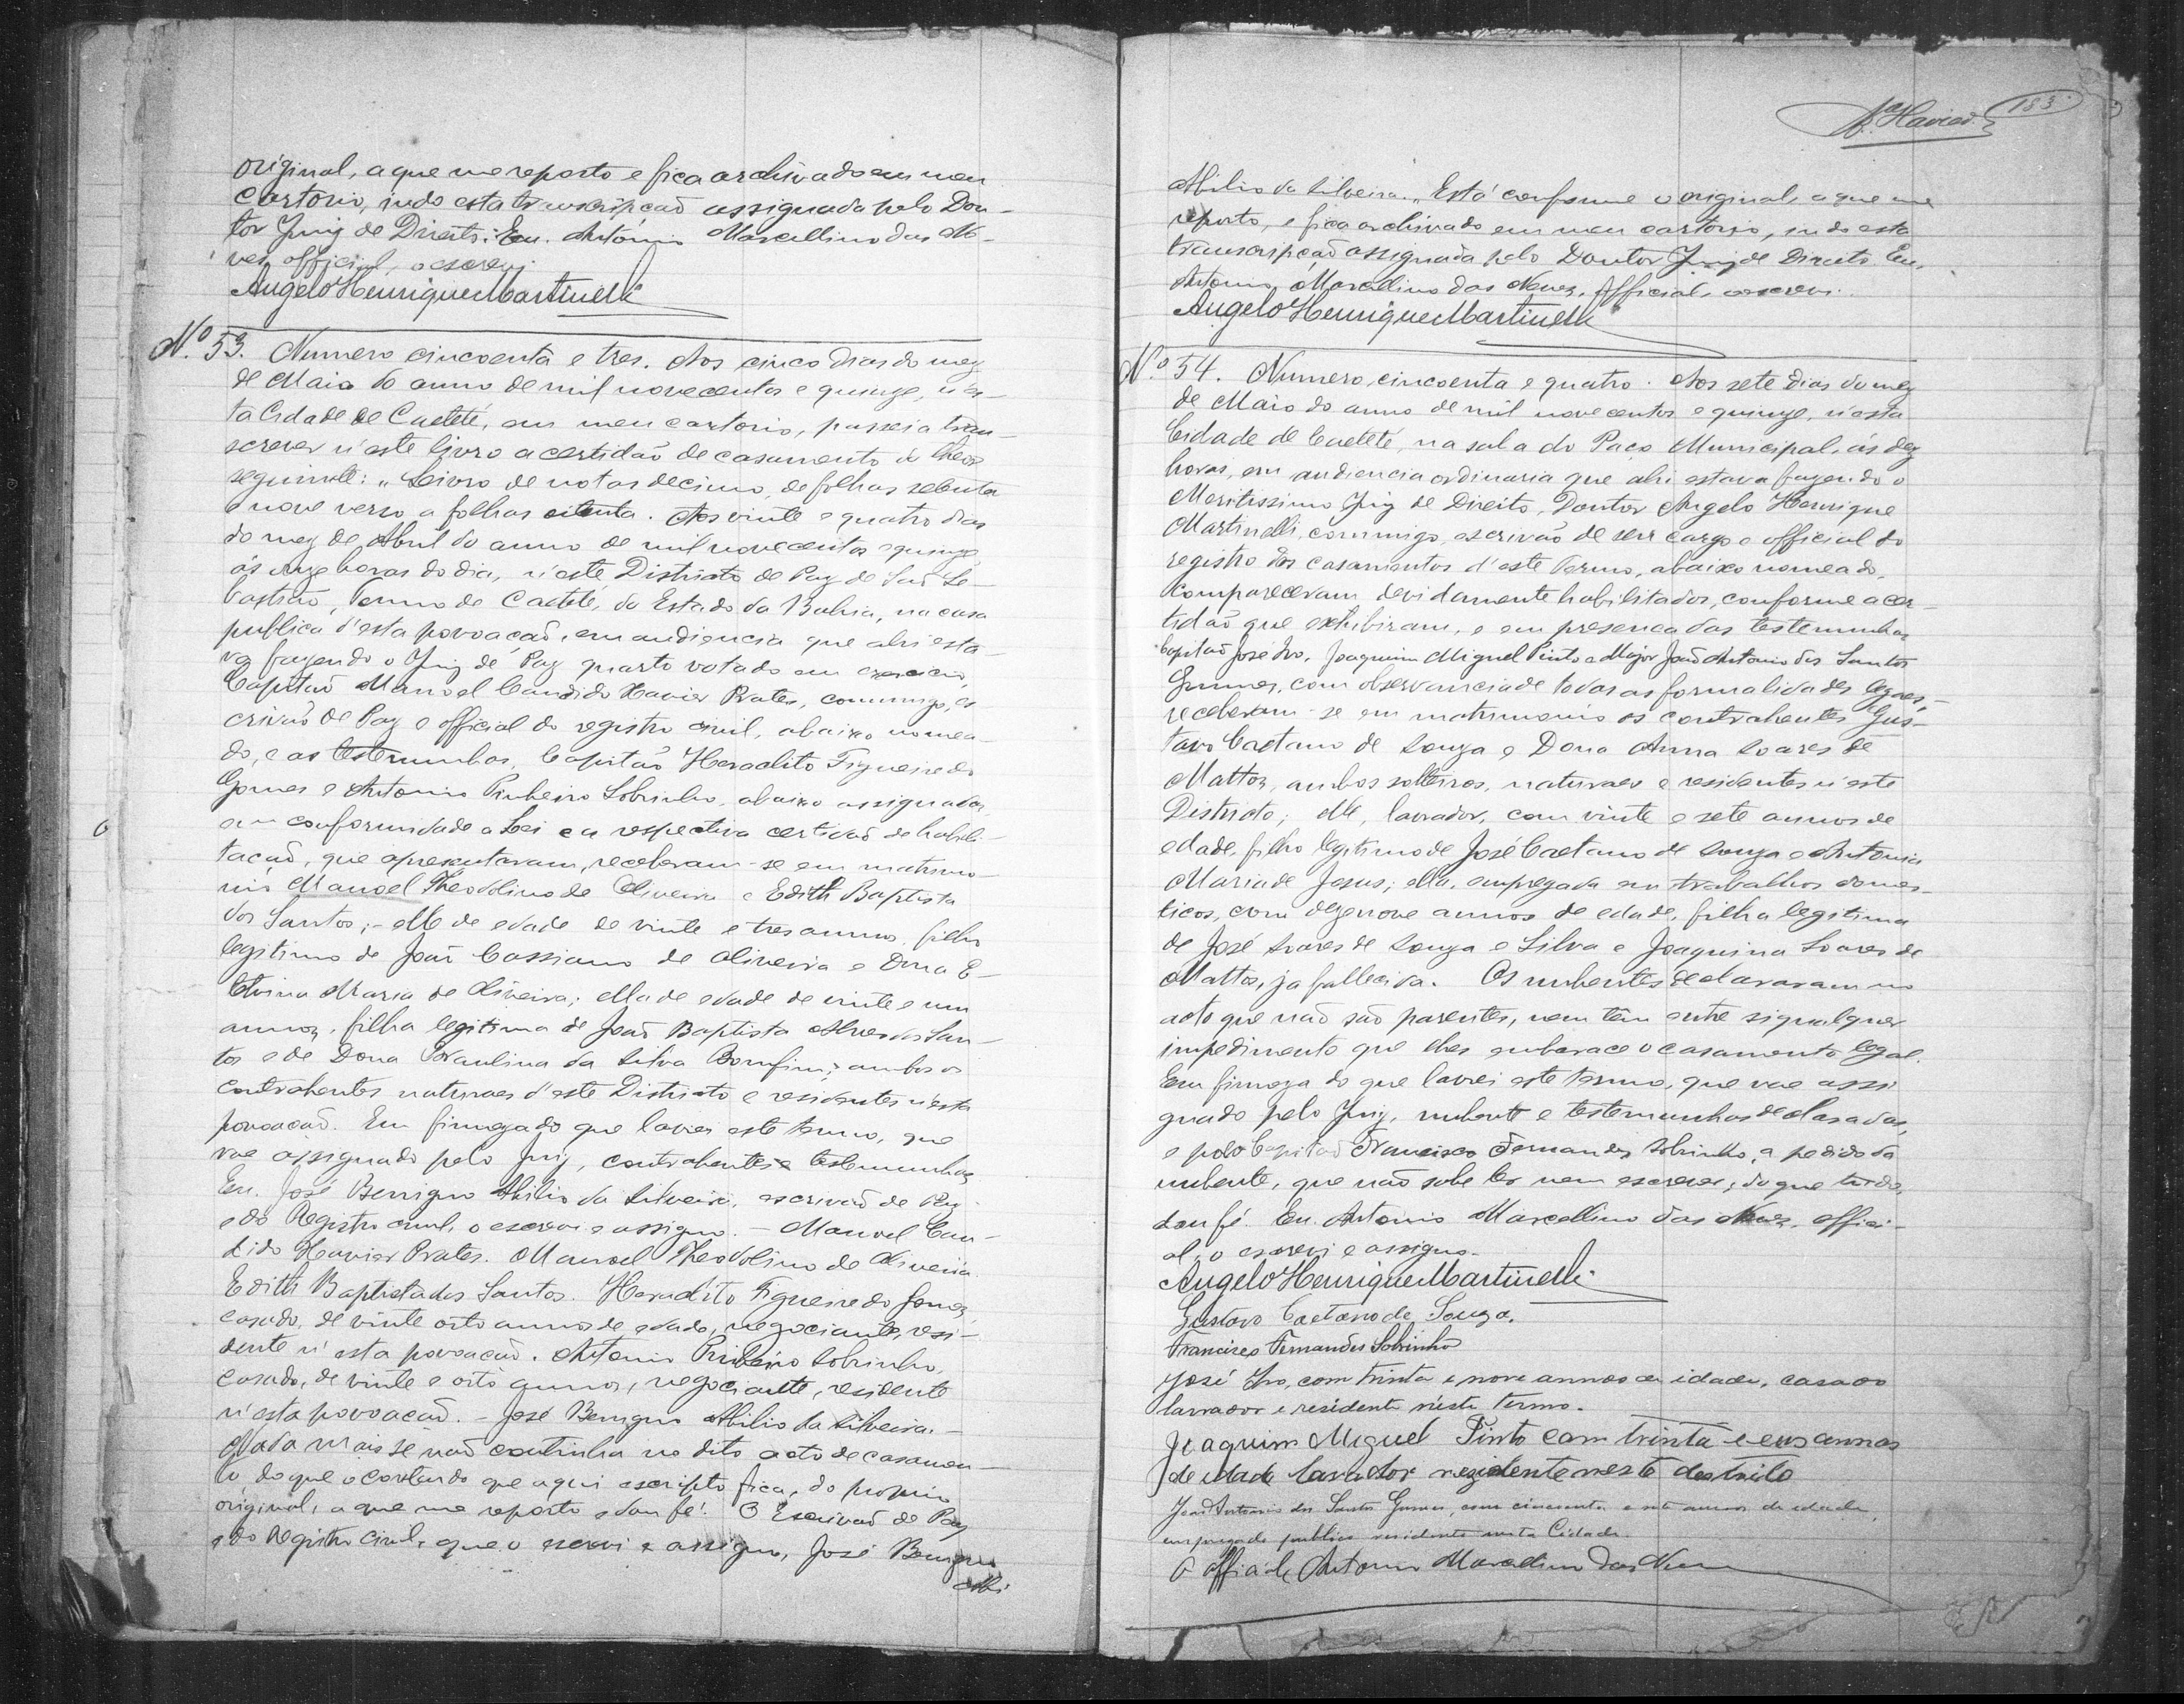 original, a que me reporto e fica archivado em meu
Cartorio, indo esta transcripção assignada pelo Dou-
tor Juiz de Direito: Eu. Antonio Marcellino das Ne-
ves, official, o escrevi.
Angelo Henrique Martinelli
Nº 53. Numero cincoenta e tres. Aos cinco dias do mez
de Maio do anno de mil novecentos e quinze, n'es-
ta Cidade de Caeteté, em meu cartorio, passei a trans-
crever n'este livro a certidão de casamento do theor
seguinte: "Livro de notas decimo, de folhas setenta
e nove verso a folhas oitenta. Aos vinte e quatro dias
do mez de Abril do anno de mil novecentos e quinze
ás onze horas do dia, n'este Districto de Paz de São Se-
bastião, Termo de Caeteté, do Estado da Bahia, na casa
publica d'esta povoação, em audiencia que ahi esta-
va fazendo o Juiz de Paz quarto votado em exercicio,
Capitão Manoel Candido Xavier Prates, commigo, es-
crivão de Paz e official do registro civil, abaixo nomea-
do, e as testemunhas, Capitão Heraclito Figueiredo
Gomes e Antonio Pinheiro Sobrinho, abaixo assignados,
em conformidade a Lei e a respectiva certidão de habili-
tação, que apresentaram, receberam-se em matrimo-
nio Manoel Theodolino de Oliveira e Edith Baptista
dos Santos; - elle de edade de vinte e tres annos, filho
legitimo de João Cassiano de Oliveira e Dona E-
telvina Maria de Oliveira; ella de edade de vinte e um
annos, filha legitima de João Baptista Alves dos San-
tos e de Dona Braulina da Silva Bomfim; ambos os
contrahentes naturaes d'este Districto e residentes n'esta
povoação. Em firmeza do que lavrei este termo, que
vae assignado pelo Juiz, contrahentes e testemunhas
Eu. José Benigno Abilio da Silveira, escrivão de Paz
e do Registro civil, o escrevi e assigno. - Manoel Can-
dido Xavier Prates. Manoel Theodolino de Oliveira
Edith Baptista dos Santos. Heraclito Figueiredo Gomes,
casado, de vinte oito annos de edade, negociante, resi-
dente n'esta povoação. Antonio Pinheiro Sobrinho,
casado, de vinte e oito annos, negociante, residente
n'esta povoação. - José Benigno Abilio da Silveira. -
Nada mais se não continha no dito acto de casamen-
to do que o contendo que aqui escripto fica, do proprio
original, a que me reporto e dou fé. O Escrivão de Paz
e do Registro Civil, que o escrevi e assigno, José Benigno
Abi
183
Abilio da Silveira." Está conforme o original, a que me
reporto, e fica archivado em meu cartorio, indo esta
transcripção assignada pelo Doutor Juiz de Direito. Eu,
Antonio Marcellino das Neves, official, o escrevi.
Angelo Henrique Martinelli
Nº 54. Numero cincoenta e quatro. Aos sete dias do mez
de Maio do anno de mil novecentos e quinze, n'esta
Cidade de Caeteté, na sala do Paço Municipal, ás dez
horas, em audiencia ordinaria que ahi estava fazendo o
Meritissimo Juiz de Direito, Doutor Angelo Henrique
Martinelli, commigo, escrivão de seu cargo e official do
registro dos casamentos d'este Termo, abaixo nomeado,
compareceram devidamente habilitados, conforme a cer-
tidão que exhibiram, e em presença das testemunhas
Capitão José Ivo, Joaquim Miguel Pinto e Major João Antonio dos Santos
Gumes, com observancia de todas as formalidades legaes,
receberam-se em matrimonio os contrahentes Gus-
tavo Caetano de Souza e Dona Anna Soares de
Mattos, ambos solteiros, naturaes e residentes n'este
Districto; elle, lavrador, com vinte e sete annos de
edade, filho legitimo de José Caetano de Souza e Antonia
Maria de Jesus; ella, empregada em trabalhos domes-
ticos, com dezenove annos de edade, filha legitima
de José Soares de Souza e Silva e Joaquina Soares de
Mattos, ja fallecida. Os nubentes declararam no
acto que não são parentes, nem têm entre si qualquer
impedimento que lhes embarace o casamento legal.
Em firmeza do que lavrei este termo, que vae assi
gnado pelo Juiz, nubente e testemunhas declaradas,
e pelo Capitão Francisco Fernandes Sobrinho, a pedido da
nubente, que não sabe ler nem escrever; do que tudo,
dou fé. Eu. Antonio Marcellino das Neves, offici-
al, o escrevi e assigno.
Angelo Henrique Martinelli
Gustavo Caetano de Souza.
Francisco Fernandes Sobrinho
José Ivo, com trinta e nove annos de idade, casado
lavrador e residente n'este termo.
Joaquim Miguel Pinto com trinta e seis annos
de idade lavrador rezidente neste destrito
João Antonio dos Santos Gumes, com cincoenta e sete annos de edade,
empregado publico residente nesta Cidade.
O official, Antonio Marcellino das Neves